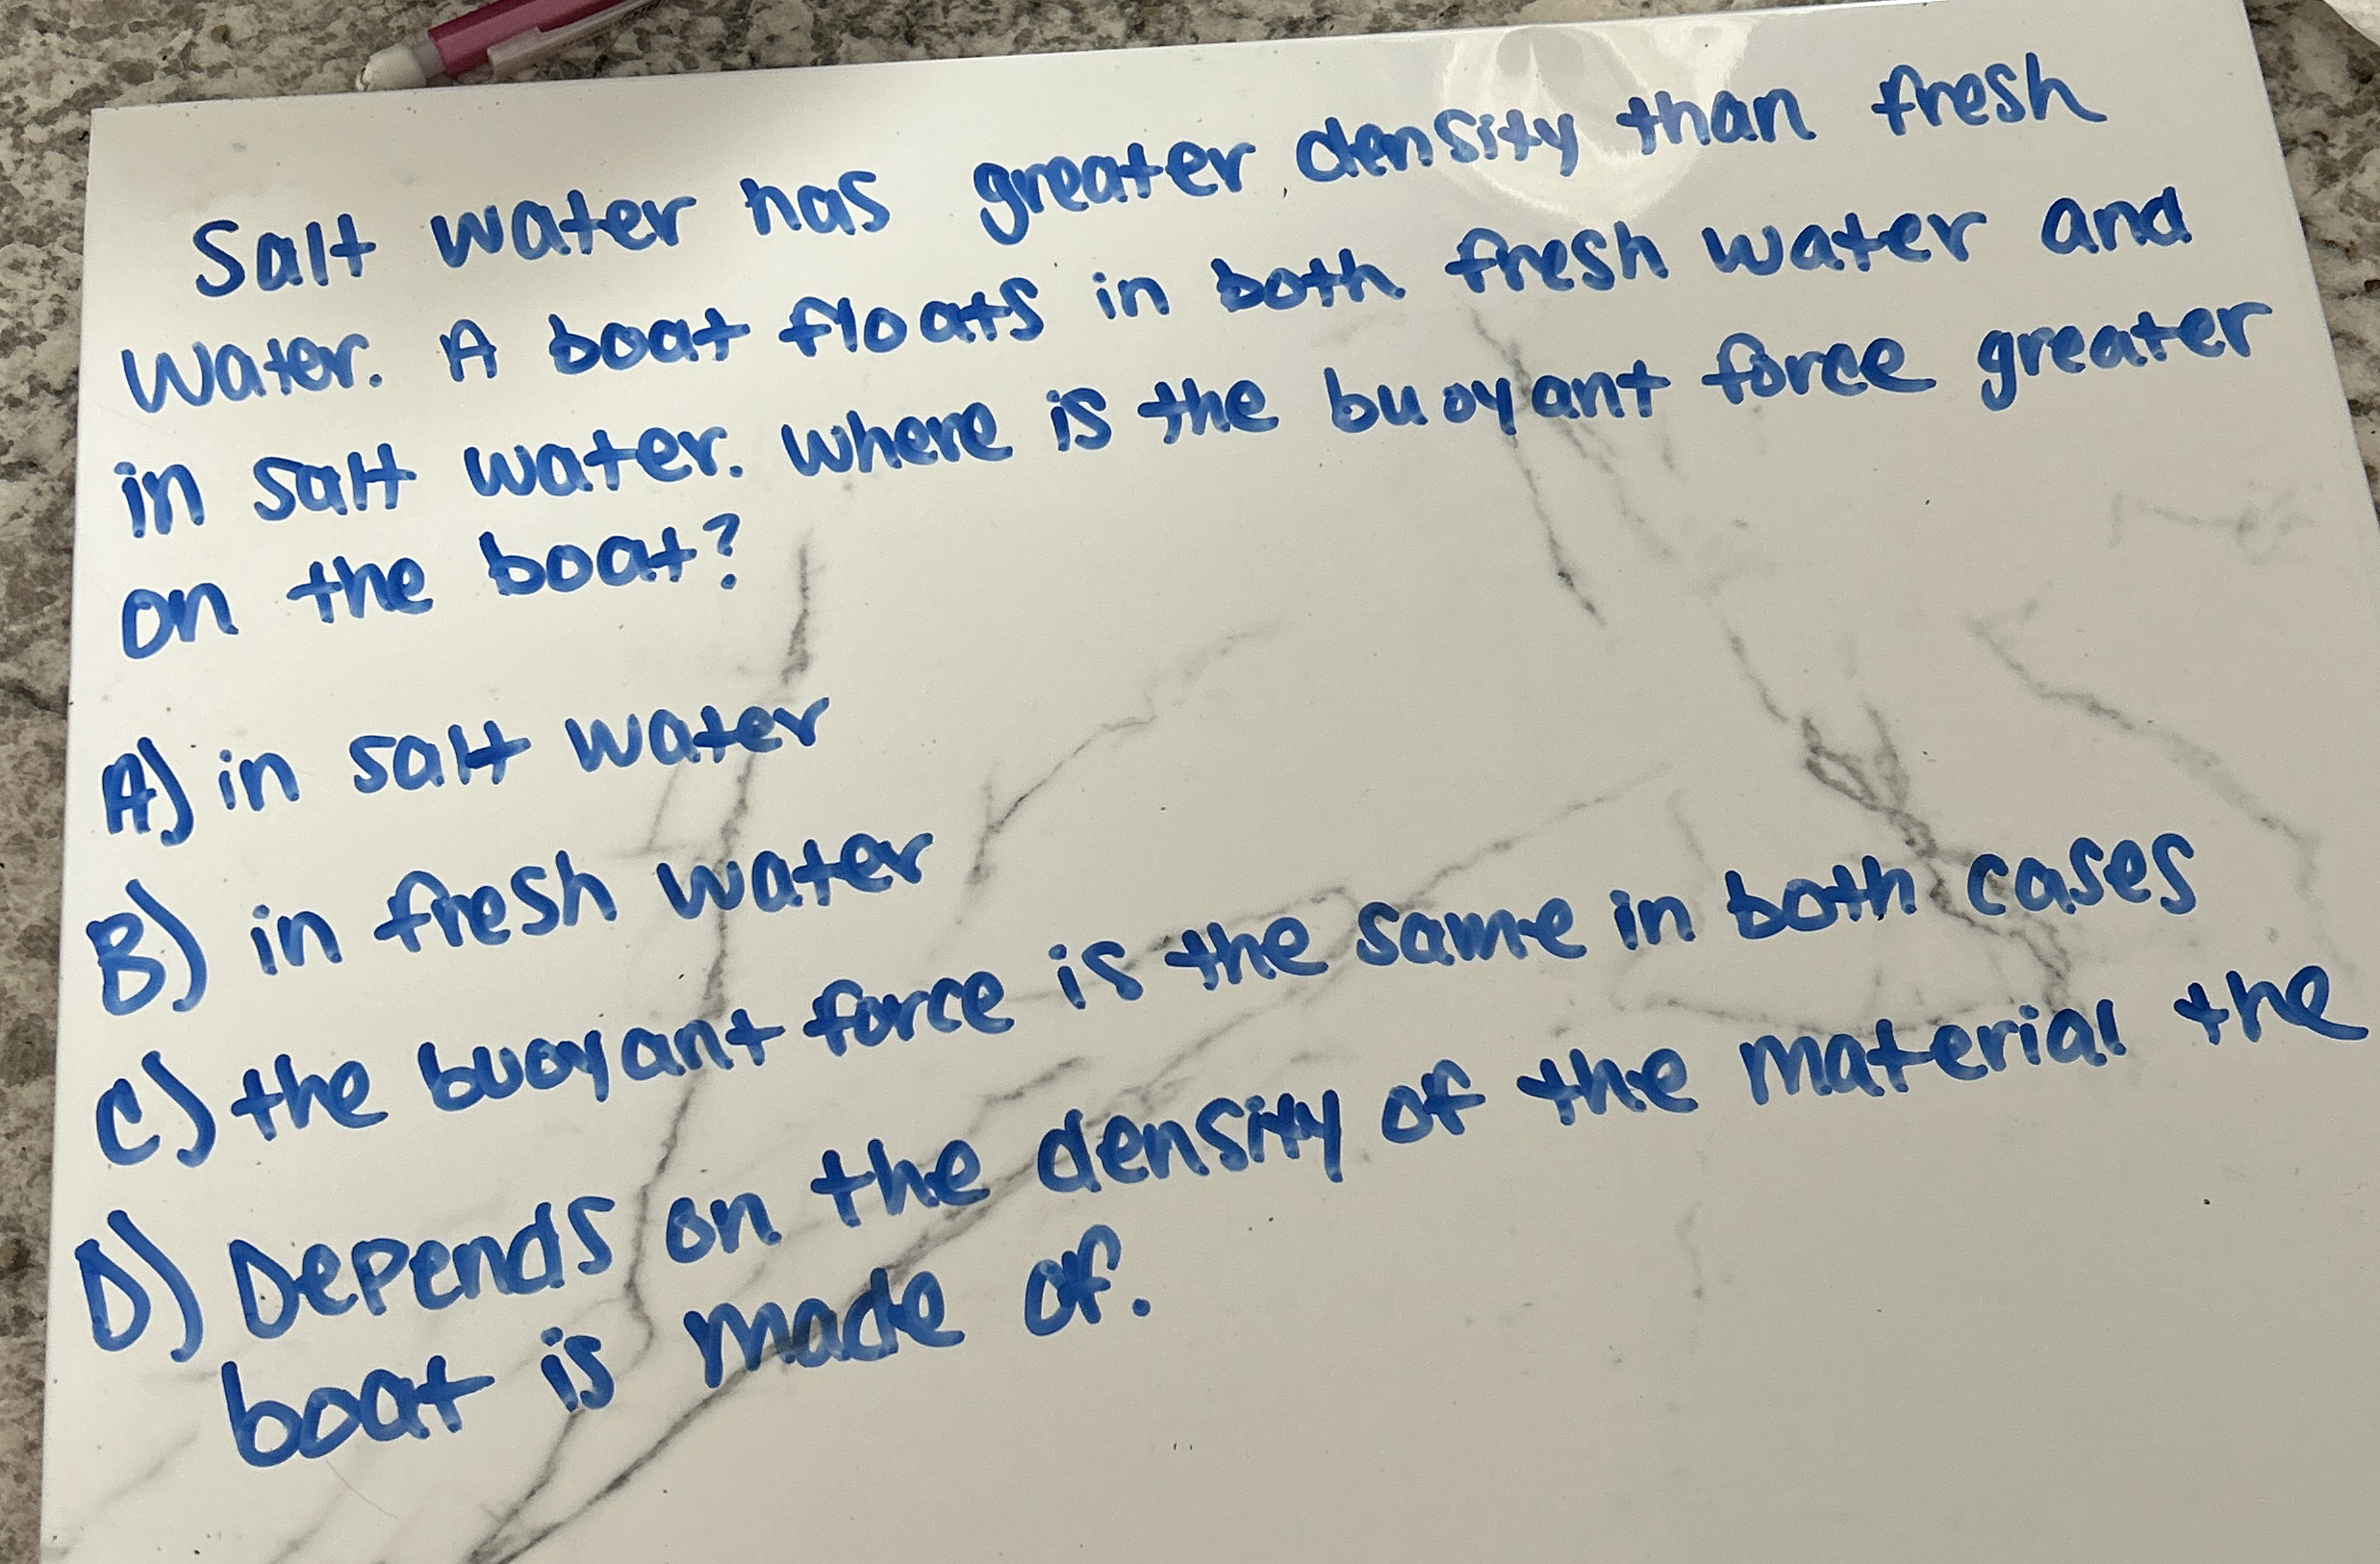 Salt water has greater density than fresh
water. A boat floats in both fresh water and
in salt water. Where is the buoyant force greater
on the boat?
A) in salt water
B) in fresh water
C) the buoyant force is the same in both cases
D) Depends on the density of the material the
boat is made of.